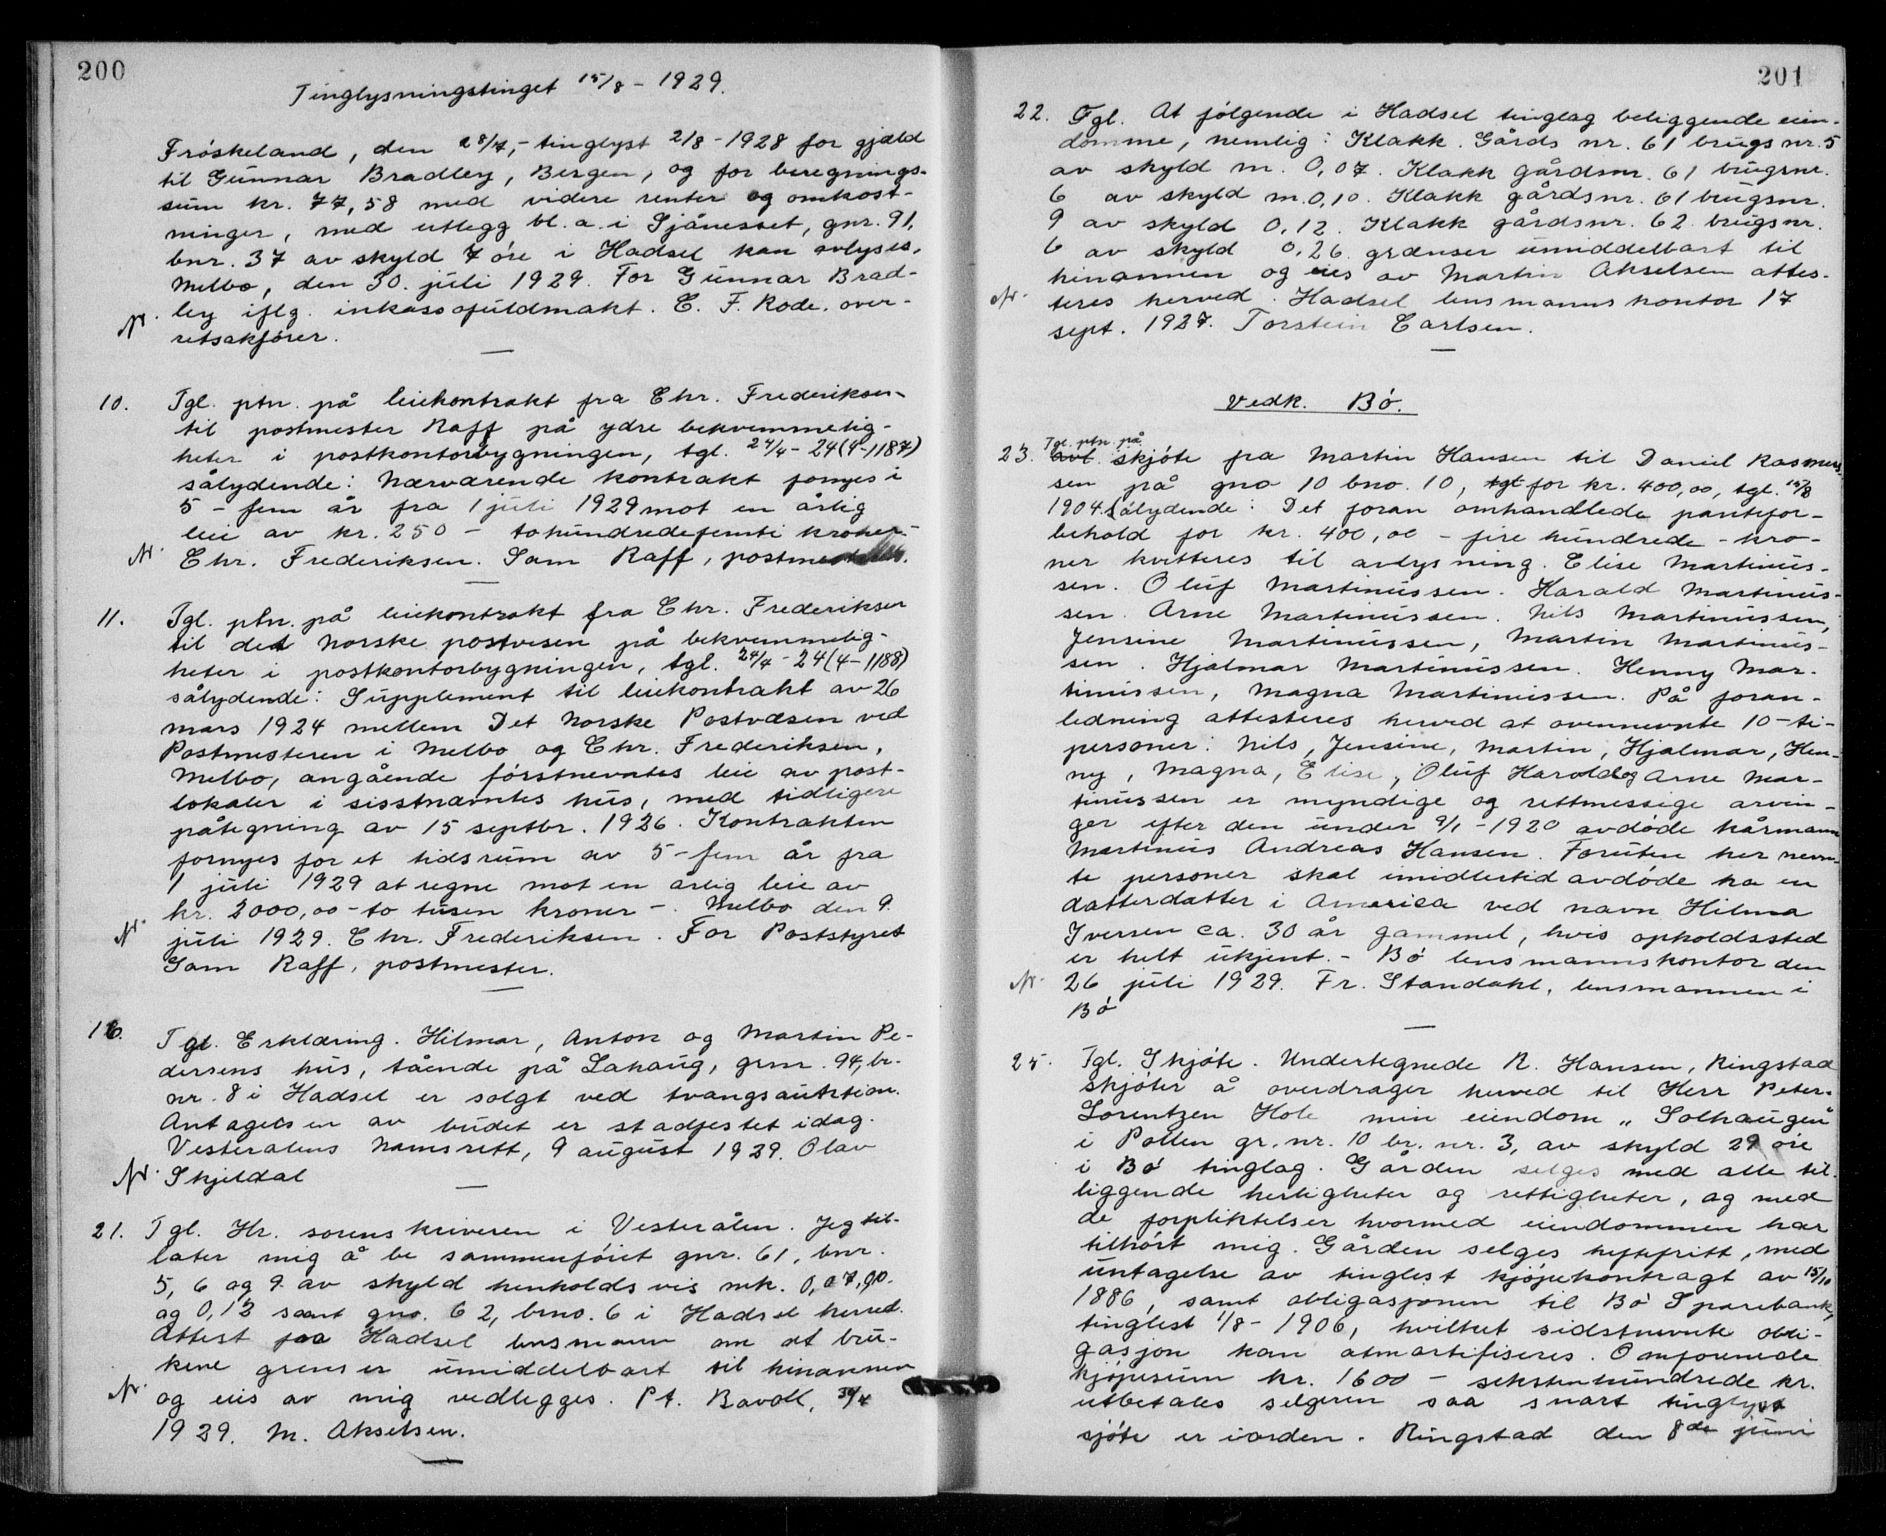 200
Tinglysningstinget 15/8 - 1929.
Frøskeland, den 28/7,- tinglyst 2/8 - 1928 for gjæld
til Gunnar Bradley, Bergen, og for beregnings-
sum kr. 77,58 med videre renter og omkost-
ninger, med utlegg bl. a. i Sjånesset, gnr. 91,
bnr. 37 av skyld 7 øre i Hadsel kan avlyses.
Melbo, den 30. juli 1929. For Gunnar Brad-
ley iflg. inkassofuldmakt. C. F. Rode. over-
retsakfører.
10. Tgl. ptn. på leiekontrakt fra Chr. Frederiksen
til postmester Raff på ydre bekvemmelig-
heter i postkontorbygningen, tgl. 24/4 - 24 (4-1187)
sålydende: Nærværende kontrakt fornyes i
5 - fem år fra 1 juli 1929 mot en årlig
leie av kr. 250 - tohundredefemti kroner -
Chr. Frederiksen. Sam Raff, postmester.
11. Tgl. ptn. på leiekontrakt fra Chr. Frederiksen
til det norske postvesen på bekvemmelig-
heter i postkontorbygningen, tgl. 24/4 - 24 (4-1188)
sålydende: Supplement til leiekontrakt av 26
mars 1924 mellem Det Norske Postvæsen ved
Postmesteren i Melbo og Chr. Frederiksen,
Melbo, angående førstnevntes leie av post-
lokaler i sisstnævntes hus, med tidligere
påtegning av 15 septbr. 1926. Kontrakten
fornyes for et tidsrum av 5 - fem år fra
1 juli 1929 at regne mot en årlig leie av
kr. 2000,00 - to tusen kroner -. Melbo den 9
juli 1929. Chr. Frederiksen. For Poststyret
Sam Raff, postmester.
16. Tgl. Erklæring. Hilmar, Anton og Martin Pe-
dersens hus, tående på Lahaug, grnr. 94, br.
nr. 8 i Hadsel er solgt ved tvangsauktion.
Antagelsen av budet er stadfestet idag.
Vesterålens namsrett, 9 august 1929. Olav
Skjeldal
21. Tgl. Hr. sorenskriveren i Vesterålen. Jeg til-
later mig å be sammenføiet gnr. 61, bnr.
5, 6 og 9 av skyld henholdsvis mk. 0,07, 0,10
og 0,12 samt gno. 62, brno. 6 i Hadsel herred.
Attest fra Hadsel lensmann om at bru-
kene grenser umiddelbart til hinannen
og eies av mig vedlegges. Pt. Bavoll, 30/4
1929. M. Akselsen.
201
22. Tgl. At følgende i Hadsel tinglag beliggende eien-
domme, nemlig: Klakk. Gårds nr. 61 brugs nr. 5
av skyld m. 0,07. Klakk gårdsnr. 61 brugsnr.
6 av skyld m. 0,10. Klakk gårdsnr. 61 brugsnr.
9 av skyld 0,12. Klakk gårdsnr. 62 brugsnr.
6 av skyld 0,26 grænser umiddelbart til
hinannen og eies av Martin Akselsen attes-
teres herved. Hadsel lensmannskontor 17
sept. 1927. Torstein Carlsen.
Vedk. Bø.
23. Tgl. ptn. på skjøte fra Martin Hansen til Daniel Rasmus-
sen på gno 10 bno. 10, tgl for kr. 400,00, tgl. 15/8
1904. Sålydende: Det foran omhandlede pantefor-
behold for kr. 400,00 - fire hundrede - kro-
ner kvitteres til avlysning. Elise Martinus-
sen. Oluf Martinussen. Harald Martinus-
sen. Arne Martinussen. Nils Martinussen,
Jensine Martinussen, Martin Martinus-
sen. Hjalmar Martinussen. Henny Mar-
tinussen, Magna Martinussen. På foran-
ledning attesteres herved at ovennevnte 10 - ti -
personer: Nils, Jensine, Martin, Hjalmar, Hen-
ny, Magna, Elise, Oluf Harald og Arne Mar-
tinussen er myndige og rettmessige arvin-
ger efter den under 9/1 - 1920 avdøde kårmann
Martinus Andreas Hansen. Foruten her nevn-
te personer skal imidlertid avdøde ha en
datterdatter i America ved navn Hilma
Iversen ca. 30 år gammel, hvis opholdssted
er helt ukjent. - Bø lensmannskontor den
26 juli 1929. Fr. Standahl, lensmannen i
Bø
25. Tgl. Skjøte. Undertegnede N. Hansen, Ringstad
skjøter å overdrager herved til Herr Peter
Lorentzen Hole min eiendom „Solhaugen“
i Pollen gr. nr. 10 br. nr. 3, av skyld 29 øre
i Bø tinglag. Gården selges med alle til-
liggende herligheter og rettigheter, og med
de forpliktelser hvormed eiendommen har
tilhørt mig. Gården selges heftefritt, med
untagelse av tinglest kjøpekontragt av 15/10
1886, samt obligasjonen til Bø Sparebank,
tinglest 1/8 - 1906, hvilket sidstnevnte obli-
gasjon kan atmortifiseres. Omforenede
kjøpesum kr. 1600 - sekstenhundrede kr.
utbetales selgeren saa snart tinglyst
sjøte er iorden. Ringstad den 8de juni